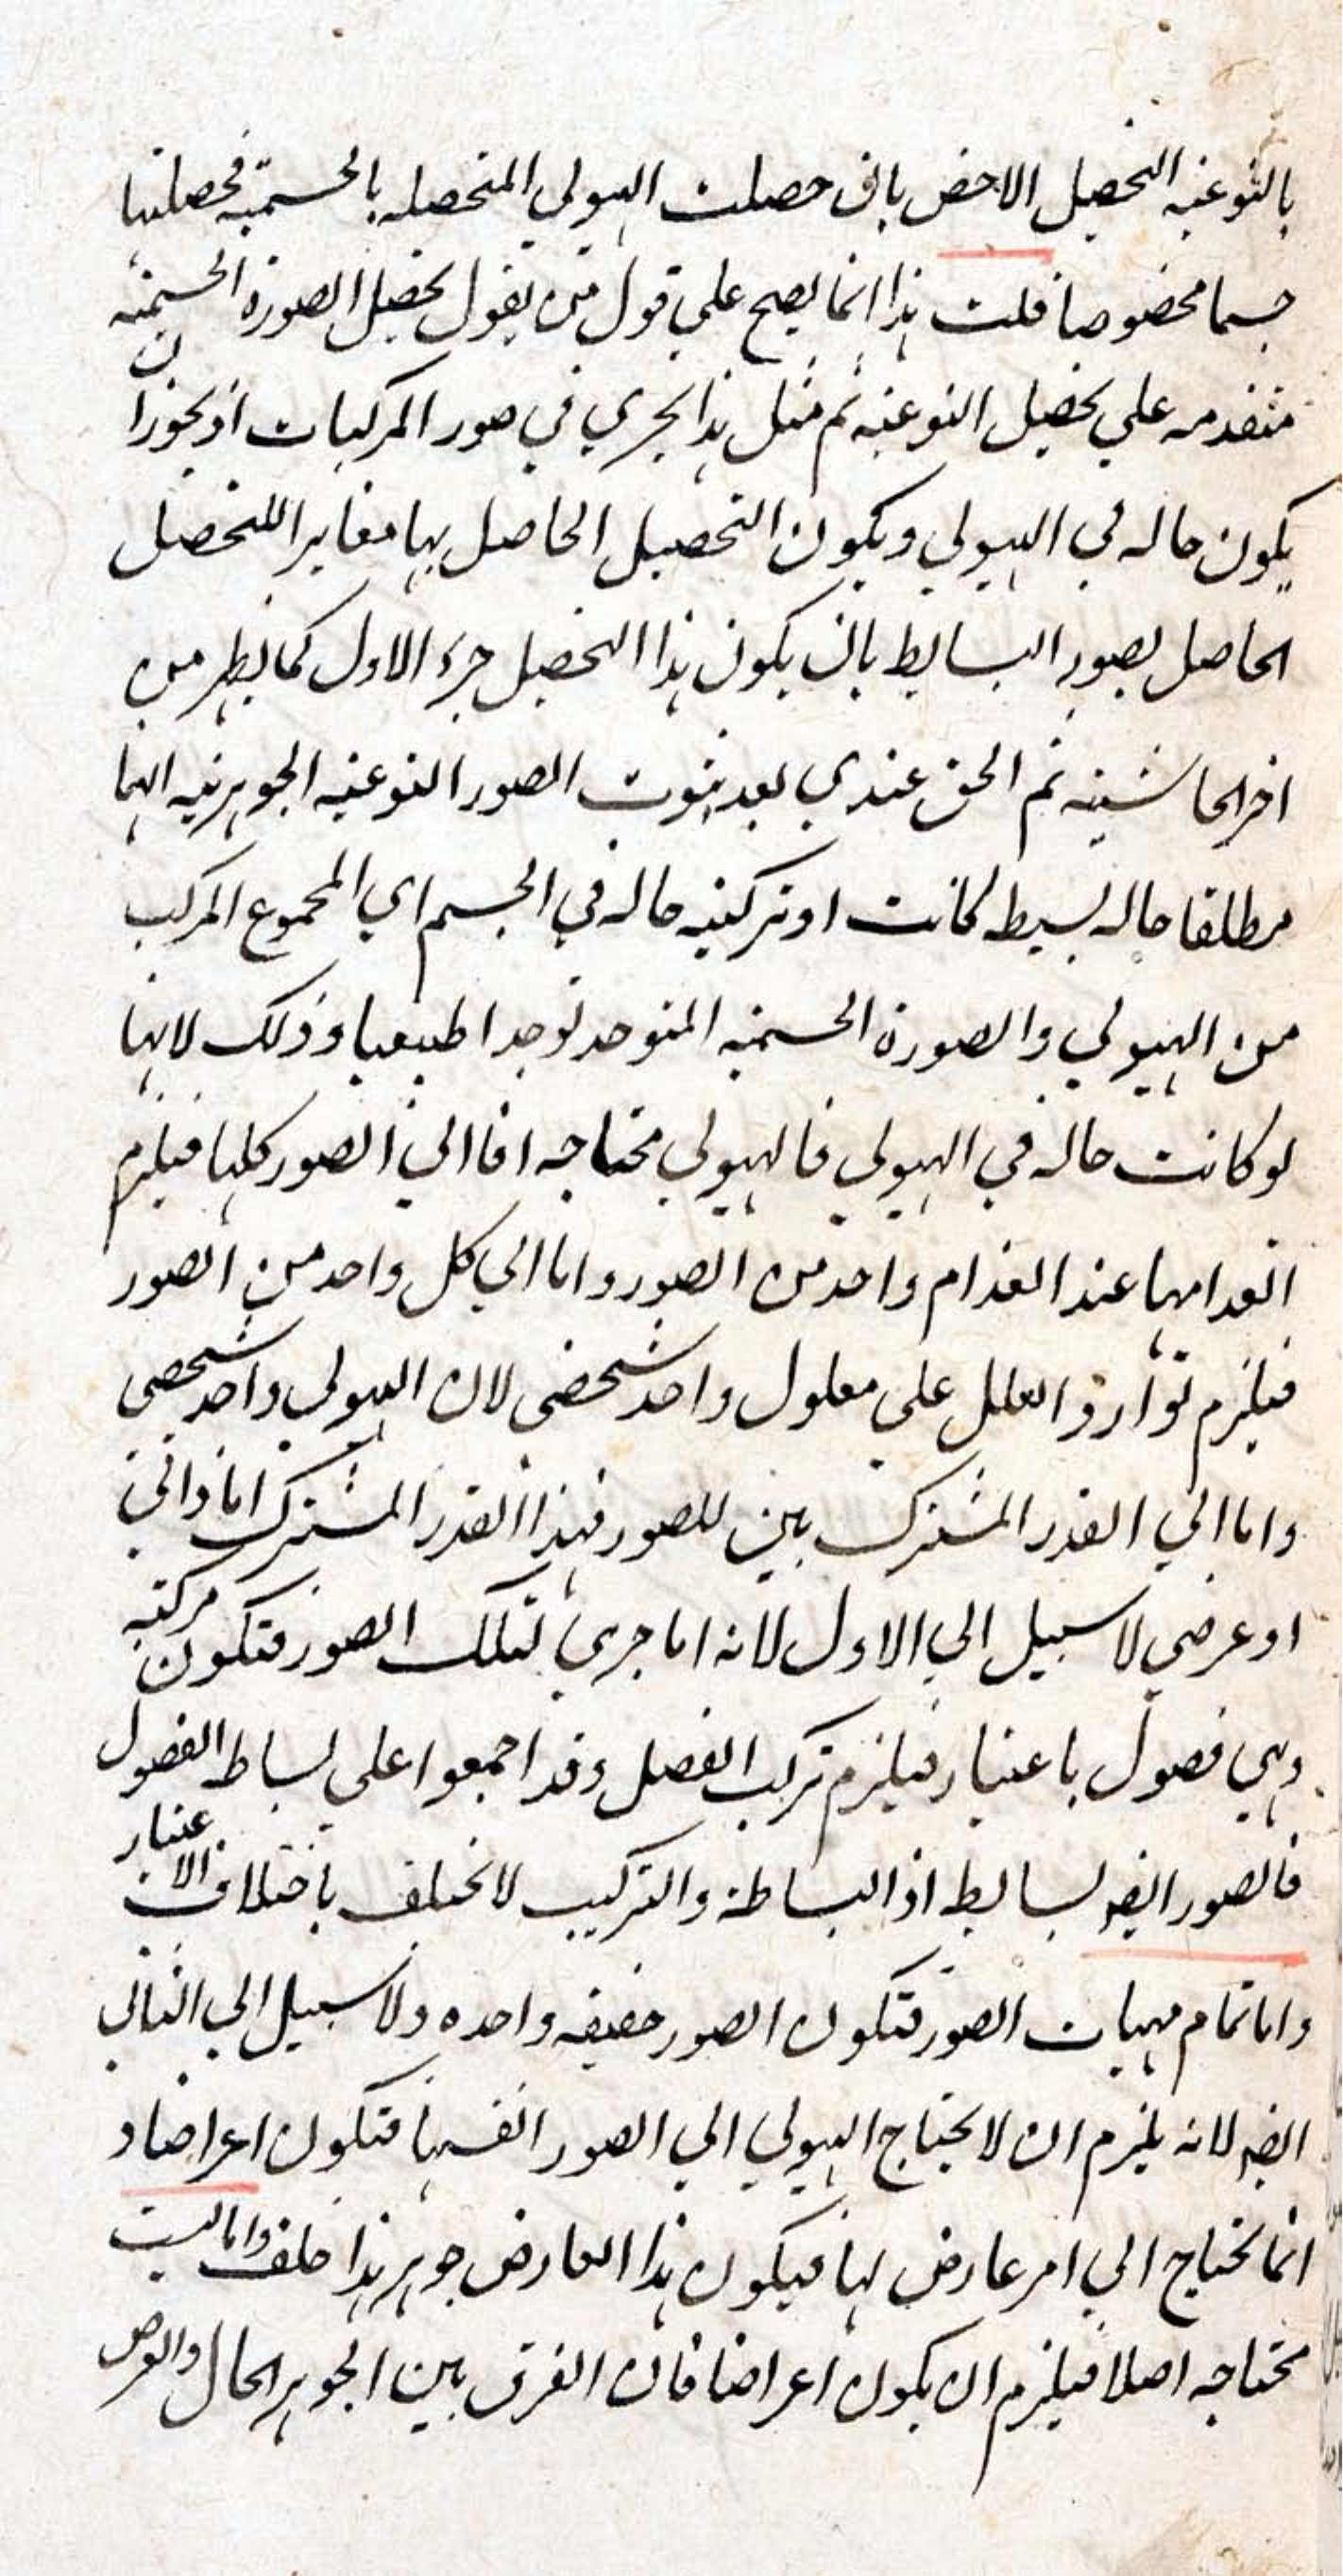 بالنوعية التحصيل الاخص بان حصلت الهيولي المتحصله بالجسمية فحصلتها
جسما مخصوصا قلت هذا انما يصح علي قول من يقول تحصيل الصورة الجسمية
متقدمه علي تحصيل النوعيه ثم مثل هذا يجري في صور المركبات اذ يجوز ان
يكون حاله في الهيولي ويكون التحصيل الحاصل بها مغايرا للتحصل
الحاصل بصور البسايط بان يكون هذا التحصيل جزء الاول كما يظهر من
اخر الحاشيه ثم الحق عندي بعد ثبوت الصور النوعيه الجوهريه انها
مطلقا حاله بسيطه كانت او تركيبيه حاله في الجسم اي المجموع المركب
من الهيولي والصورة الجسميه المتوحد توحدا طبيعيا وذلك لانها
لو كانت حاله في الهيولي فالهيولي محتاجه اما الي الصور كلها فيلزم
انعدامها عند انعدام واحد من الصور واما الي كل واحد من الصور
فيلزم توارد العلل علي معلول واحد شخصي لان الهيولي واحد شخصي
واما الي القدر المشترك بين الصور فهذا القدر المشترك اما ذاتي
او عرضي لا سبيل الي الاول لانه اما جزئ لتلك الصور فتكون مركبه
وهي فصول باعتبار فيلزم تركب الفصل وقد اجمعوا علي بساطه الفصول
فالصور ايضا بسايط اذ البساطة والتركيب لا تختلف باختلاف الاعتبار
واما تمام مهيات الصور فتكون الصور حقيقه واحده ولا سبيل الي الثاني
ايضا لانه يلزم ان لا يحتاج الهيولي الي الصور انفسها فتكون اعراضا و
انما تحتاج الي امر عارض لها فيكون هذا العارض جوهر هذا خلف واما ليست
محتاجه اصلا فيلزم ان يكون اعراضا فان الفرق بين الجوهر الحال والعرض